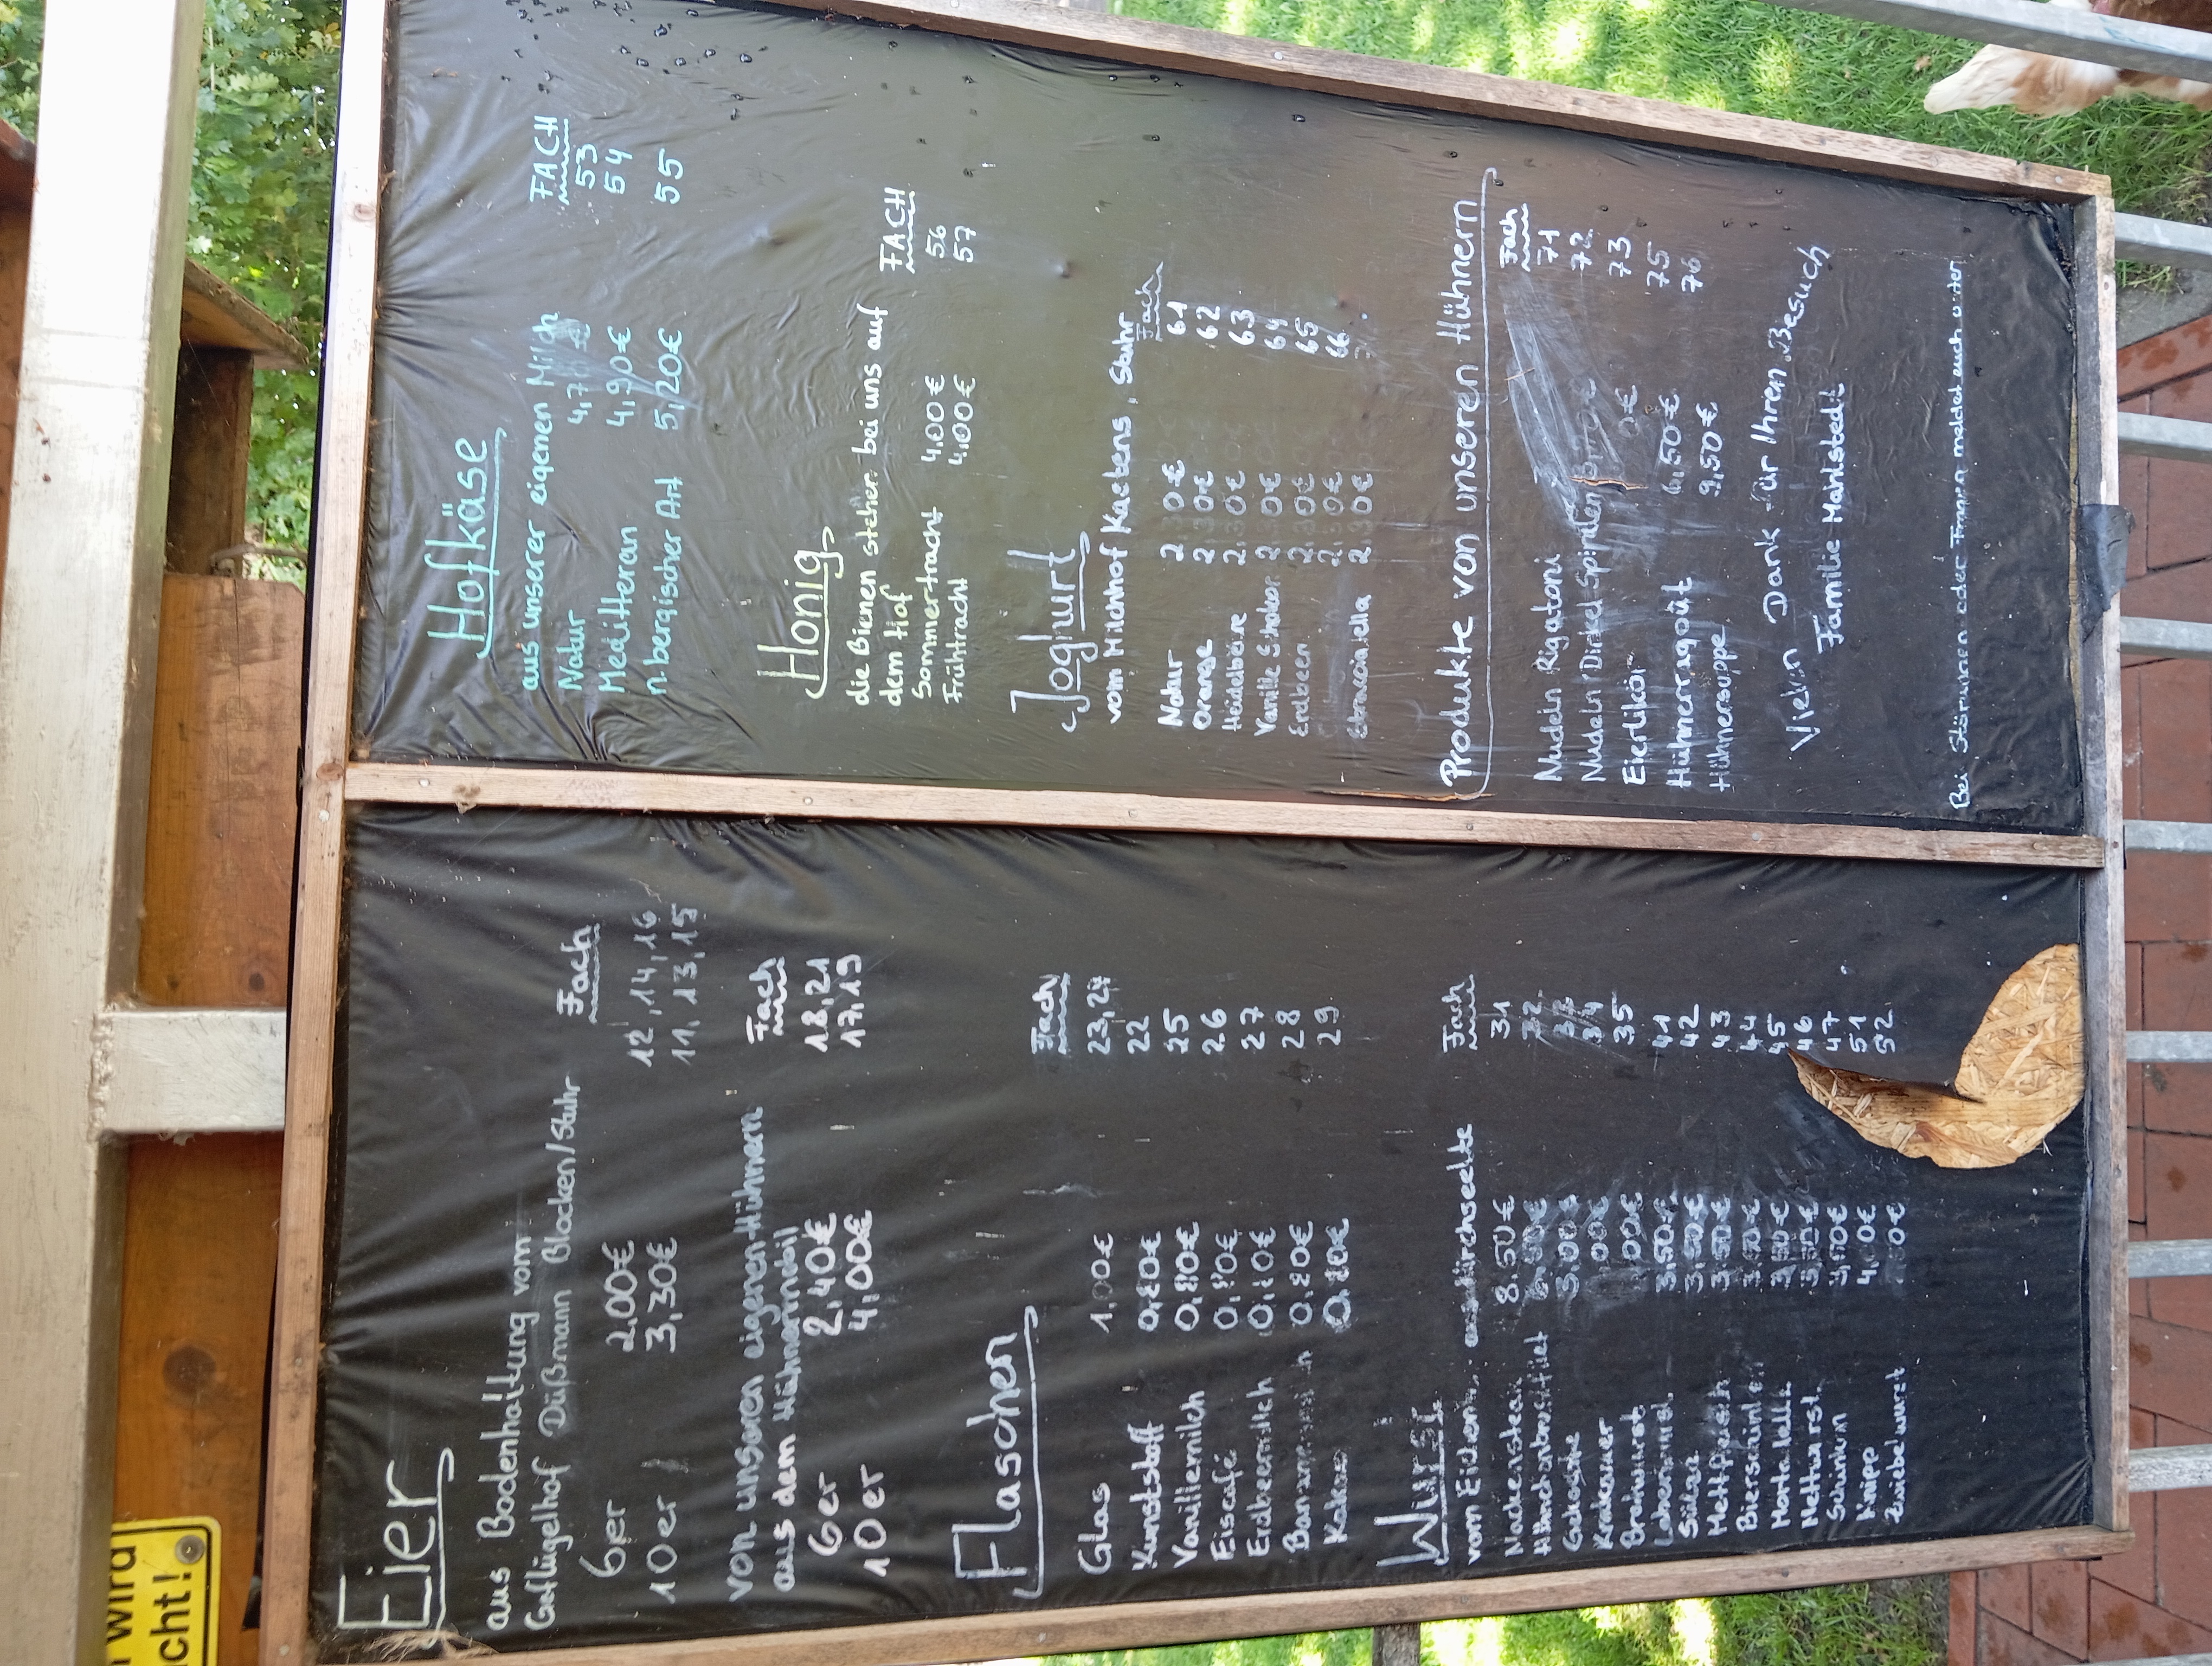 Eier
aus Bodenhaltung vom
Geflügelhof Düßmann Blocken/Stuhr
Fach
6er 2,00€ 12,14,16
10er 3,30€ 11,13,15
von unseren eigenen Hühnern
aus dem Hühnermobil
Fach
6er 2,40€ 18,21
10er 4,00€ 17,19
Flaschen
Fach
Glas 1,00€ 23,24
Kunststoff 0,80€ 22
Vanillemilch 0,80€ 25
Eiscafé 0,80€ 26
Erdbeermilch 0,80€ 27
Bananenmilch 0,80€ 28
Kakao 0,80€ 29
Wurst
Fach
vom
Nackensteak 8,50€ 31
32
3,00€
Krakauer 34
Bratwurst 35
3,50€ 41
Sülze 3,50€ 42
Mettfrisch 3,50€ 43
44
Mortadella 3,50€ 45
Mettwurst 3,50€ 46
Schinken 47
Knipp 51
Zwiebelwurst 52
Hofkäse
aus unserer eigenen Milch
FACH
Natur 53
Mediterran 4,90€ 54
n. bergischer Art 5,20€ 55
Honig
die Bienen stehen bei uns auf
dem Hof
FACH
Sommertracht 4,00€ 56
Frühtracht 4,00€ 57
Joghurt
vom Milchhof Kaetens, Stuhr
Fach
Natur 2,30€ 61
Orange 2,30€ 62
Heidelbeere 2,30€ 63
Vanille Schoko 2,30€ 64
Erdbeer 2,30€ 65
2,30€ 66
Stracciatella 2,30€
Produkte von unseren Hühnern
Fach
Nudeln Rigatoni 71
Nudeln Dinkel Spiralen 72
Eierlikör 73
Hühnerragout 6,50€ 75
Hühnersuppe 9,50€ 76
Vielen Dank für Ihren Besuch
Familie Mahlstedt
Bei Störungen oder Fragen meldet euch unter:
wird
cht!